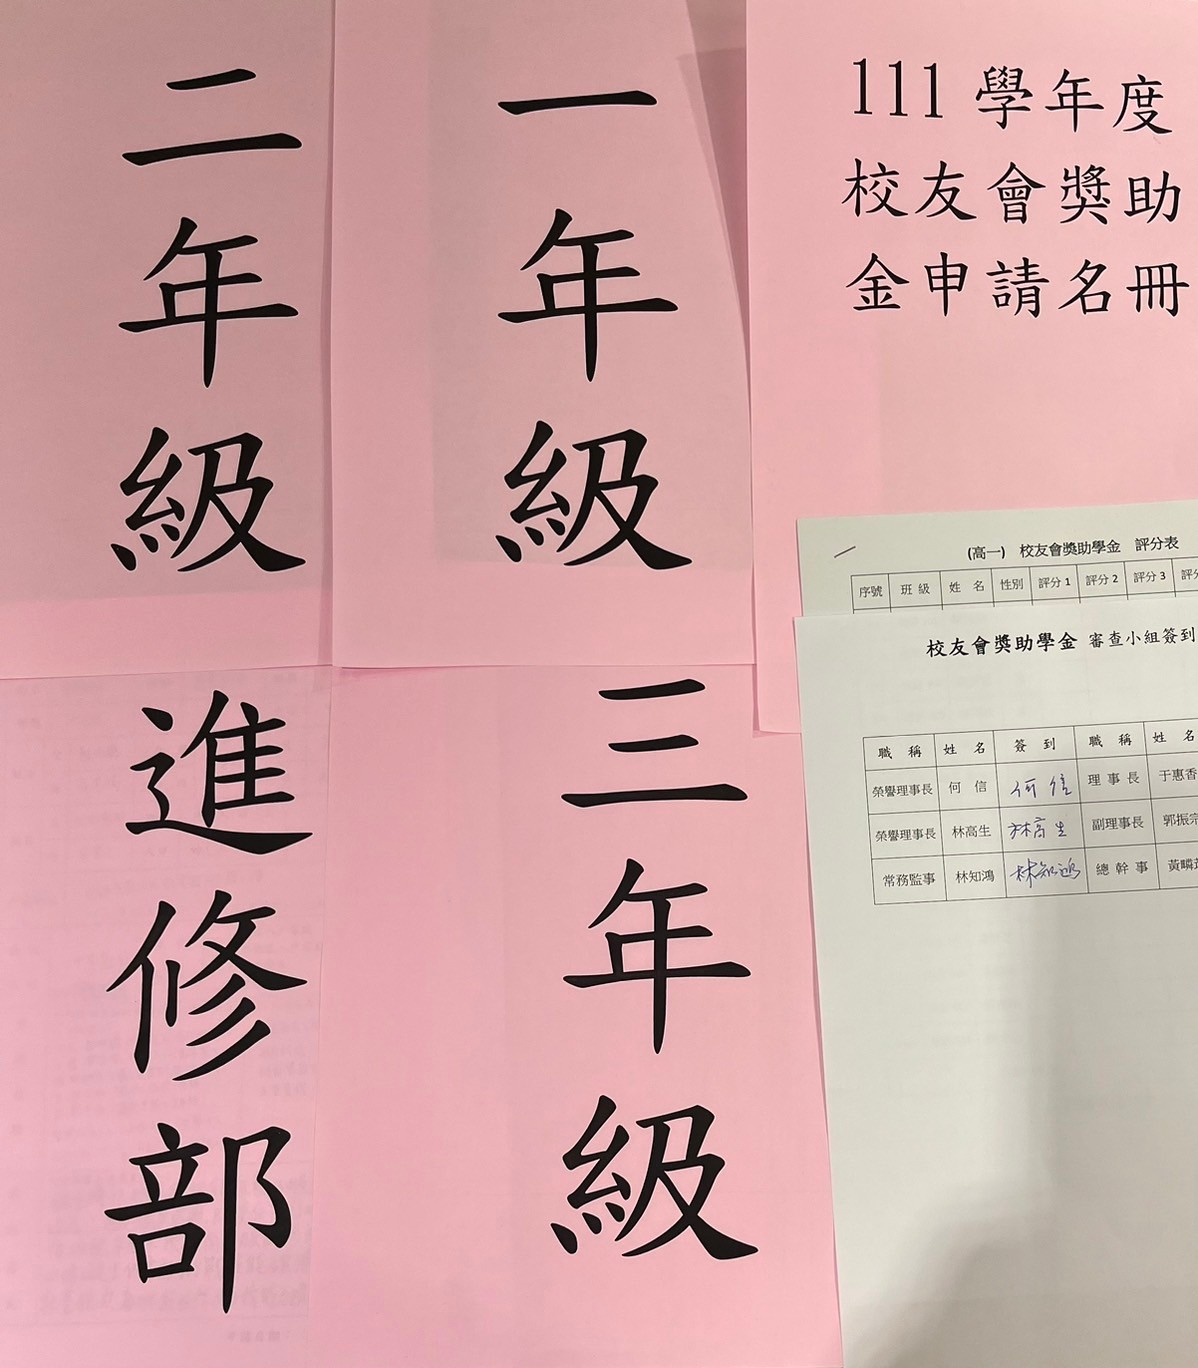 二年級
一年級
111 學年度
校友會獎助
金申請名冊
進修部
三年級
(高一) 校友會獎助學金 評分表
序號 班級 姓名 性別 評分1 評分2 評分3 評分
校友會獎助學金 審查小組簽到
職稱 姓名 簽到 職稱 姓名
榮譽理事長 何信 何信 理事長 于惠香
榮譽理事長 林高生 林高生 副理事長 郭振宗
常務監事 林知鴻 林知鴻 總幹事 黃疄